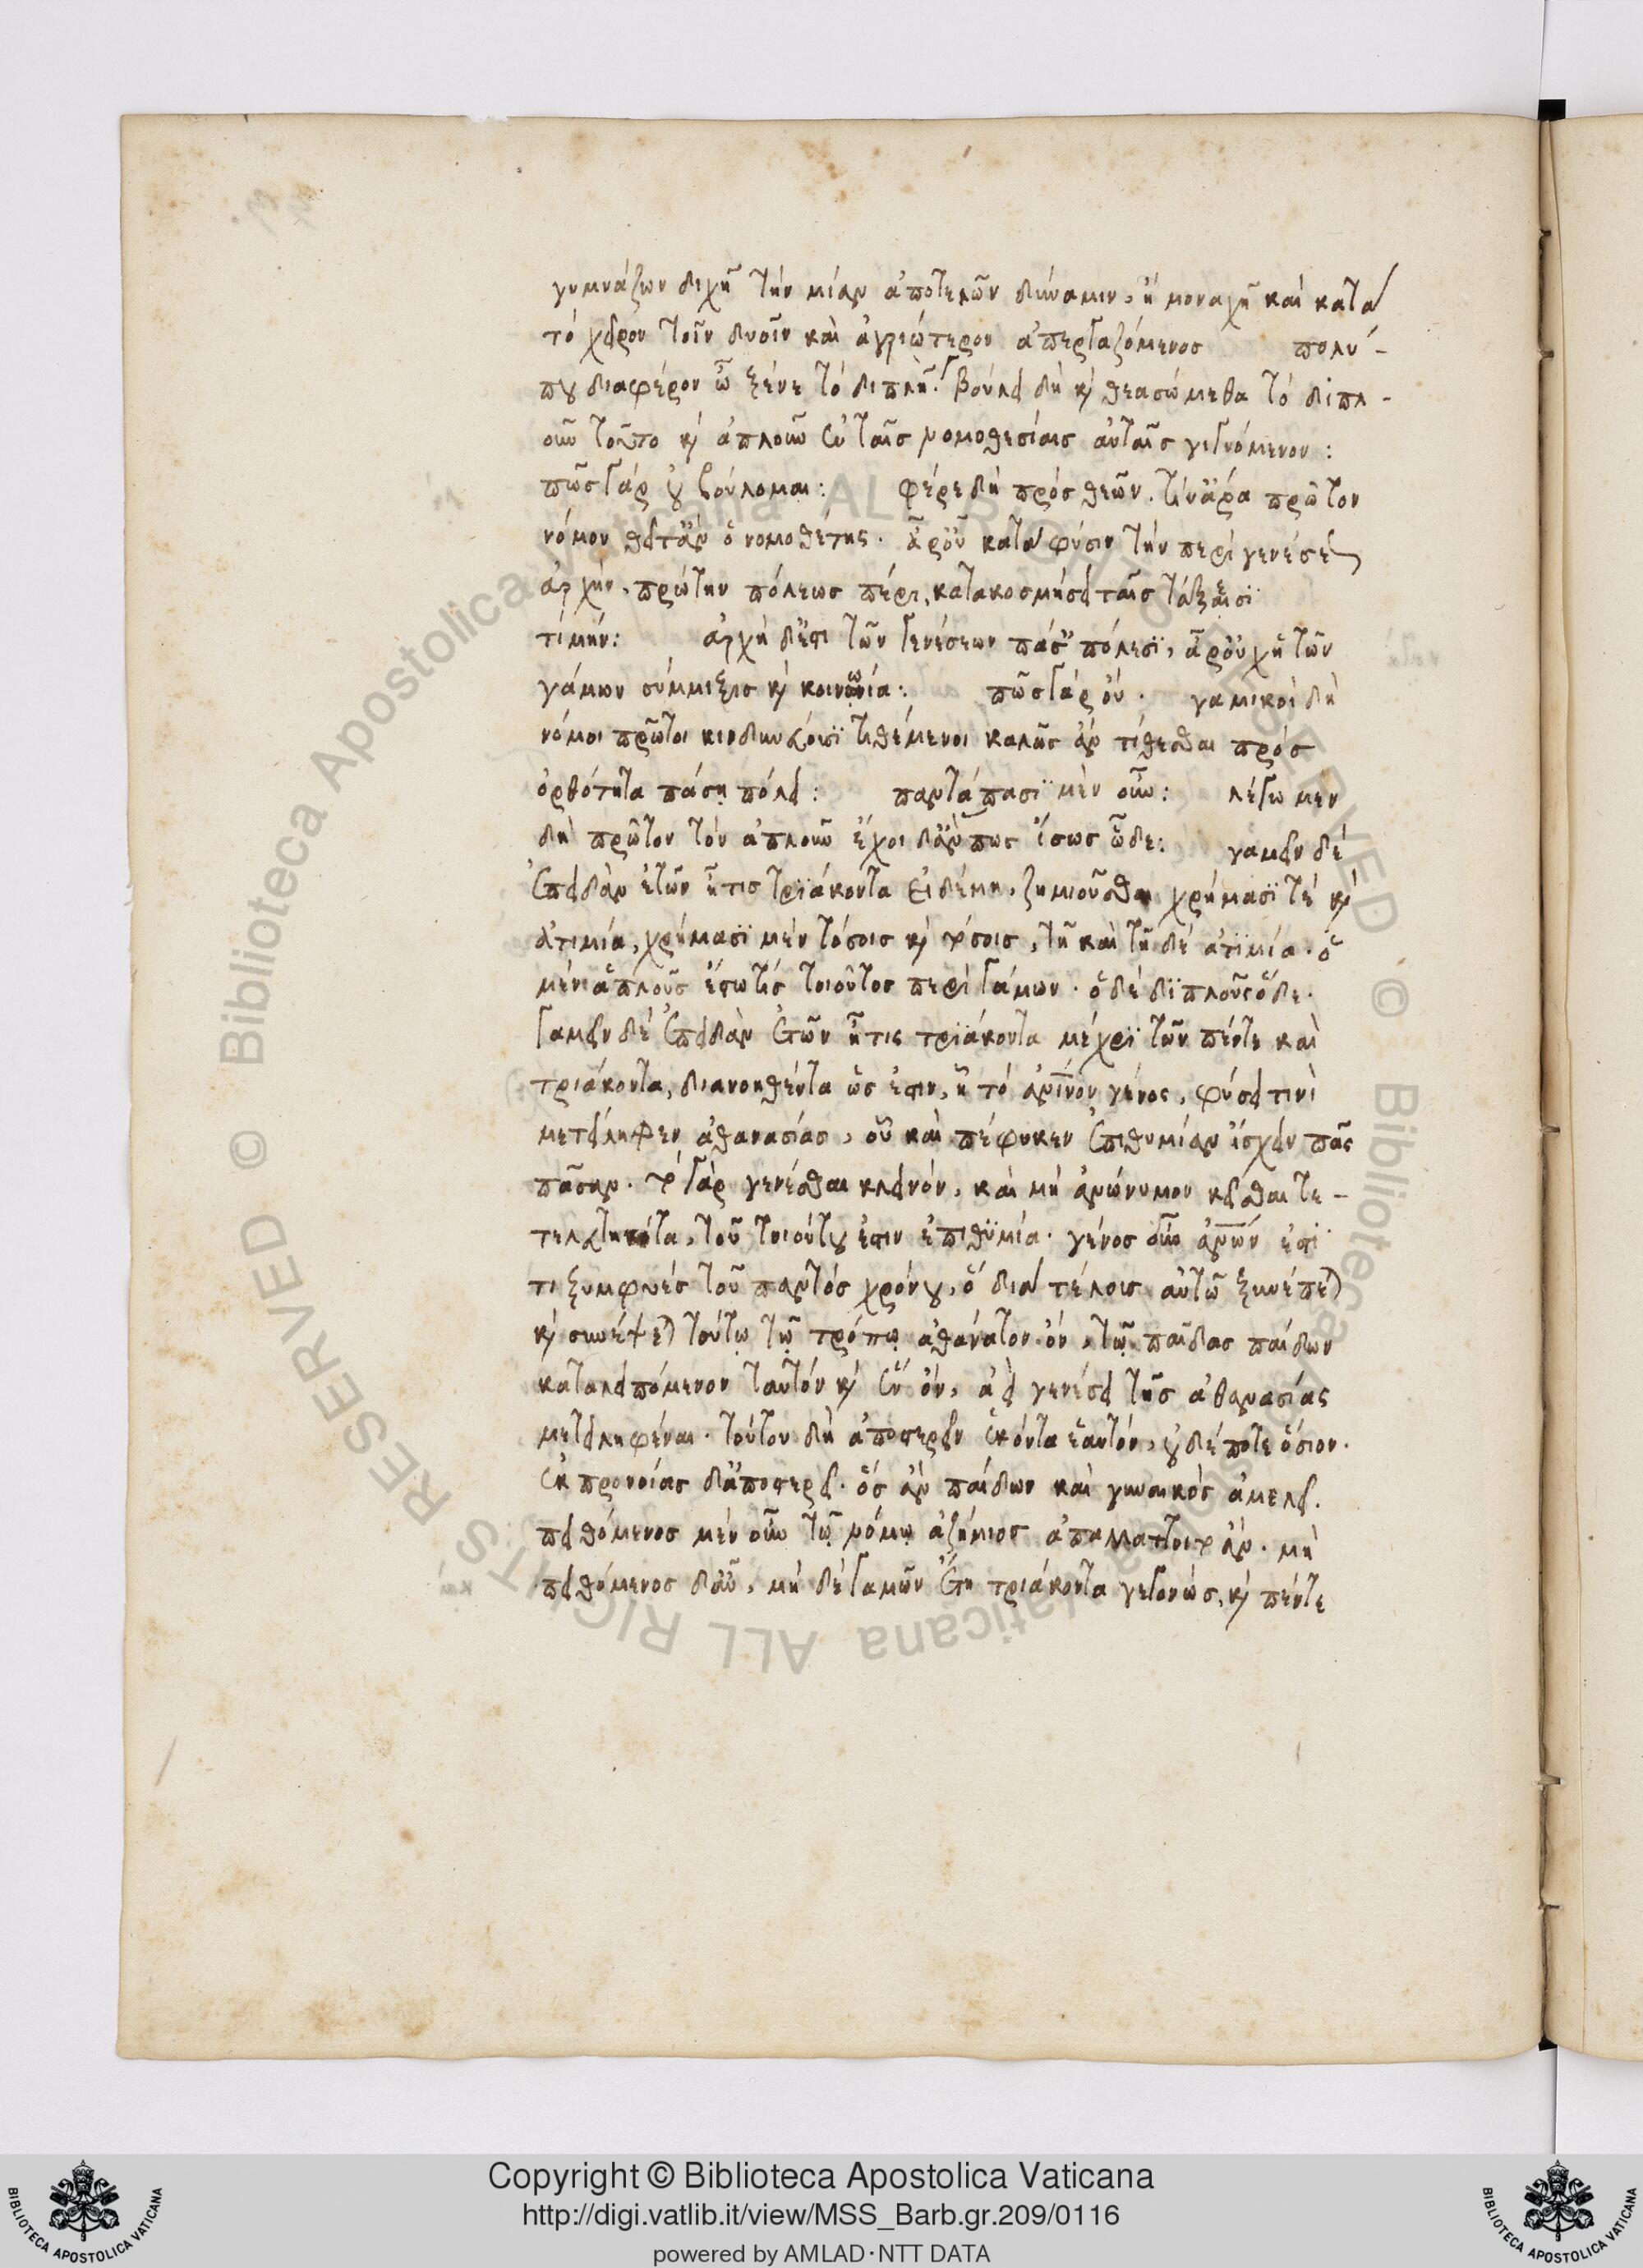 γυμνάζων διχῆ τὴν μίαν ἀποτελῶν δύναμιν, ἢ μοναχῆ καὶ κατὰ
τὸ χεῖρον τοῖν δυοῖν καὶ ἀγριώτερον ἀπεργαζόμενος πολύ-
που διαφέρον ὦ ξένε τὸ διπλῆ. βούλει δὴ καὶ θεασώμεθα τὸ διπλ-
οῦν τοῦτο καὶ ἁπλοῦν ἐν ταῖς νομοθεσίαις αὐταῖς γιγνόμενον:
πῶς γὰρ οὐ βούλομαι: φέρε δὴ πρὸς θεῶν. τίν' ἄρα πρῶτον
νόμον θεῖτ' ἂν ὁ νομοθέτης. ἆρ' οὐ κατὰ φύσιν τὴν περὶ γενέσεως
ἀρχὴν, πρώτην πόλεως πέρι, κατακοσμήσει ταῖς τάξεσι
τί μήν: ἀρχὴ δ' ἐστι τῶν γενέσεων πάσαις πόλεσι, ἆρ' οὐχ ἡ τῶν
γάμων σύμμιξις καὶ κοινωνία: πῶς γὰρ οὔ. γαμικοὶ δὴ
νόμοι πρῶτοι κινδυνεύουσι τιθέμενοι καλῶς ἂν τίθεσθαι πρὸς
ὀρθότητα πάσῃ πόλει: παντάπασι μὲν οὖν: λέγωμεν
δὴ πρῶτον τὸν ἁπλοῦν ἔχοι δ' ἄν πως ἴσως ὧδε: γαμεῖν δέ
ἐπειδὰν ἐτῶν ᾖ τις τριάκοντα εἰ δὲ μη, ζημιοῦσθαι χρήμασί τε καὶ
ἀτιμία, χρήμασι μὲν τόσοις καὶ τόσοις, τῇ καὶ τῇ δὲ ἀτιμία. ὁ
μὲν ἁπλοῦς ἔστω τίς τοιοῦτος περὶ γάμων. ὁ δὲ διπλοῦς ὅδε.
γαμεῖν δὲ ἐπειδὰν ἐτῶν ᾖ τις τριάκοντα μέχρι τῶν πέντε καὶ
τριάκοντα, διανοηθέντα ὡς ἐστιν, ᾗ τὸ ἀνινον γένος, φύσει τινὶ
μετείληφεν ἀθανασίας, οὗ καὶ πέφυκεν ἐπιθυμίαν ἴσχειν πᾶς
πᾶσαν. τὸ γὰρ γενέσθαι κλεινόν, καὶ μὴ ἀνώνυμον κεῖσθαι τε-
τελευτηκότα, τοῦ τοιούτου ἐστιν ἐπιθυμία. γένος οὖν ἀνων ἐστί
τι ξυμφυὲς τοῦ παντὸς χρόνου, ὃ διὰ τέλους αὐτῶ ξυνέπεται
καὶ συνέψεται τούτῳ τῷ τρόπῳ ἀθάνατον ὄν, τῷ παῖδας παίδων
καταλειπόμενον ταυτὸν καὶ ἓν ὄν, ἀεὶ γενέσει τῆς ἀθανασίας
μετειληφέναι. τούτου δὴ ἀποστερεῖν ἑκόντα ἑαυτόν, οὐδέποτε ὅσιον.
ἐκ προνοίας δ' ἀποστερεῖ. ὃς ἂν παίδων καὶ γυναικὸς ἀμελεῖ.
πειθόμενος μὲν οὖν τῷ νόμῳ ἀζήμιος ἀπαλλάττοιτο ἄν. μὴ
πειθόμενος δ' αὖ, μὴ δὲ γαμῶν ἔτη τριάκοντα γεγονὼς, καὶ πέντε
Copyright © Biblioteca Apostolica Vaticana
http://digi.vatlib.it/view/MSS_Barb.gr.209/0116
powered by AMLAD·NTT DATA